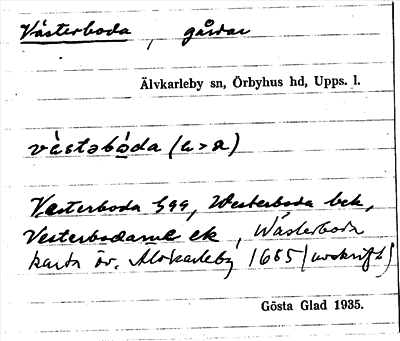 Västerboda, gårdar
Älvkarleby sn, Örbyhus hd, Upps. l.
västəbo̱da (a > a)
Vesterboda Egg, Westerboda bek,
Vesterbodarne ek, Wästerboda
karta öv. Älvkarleby 1685 (avskrift)
Gösta Glad 1935.